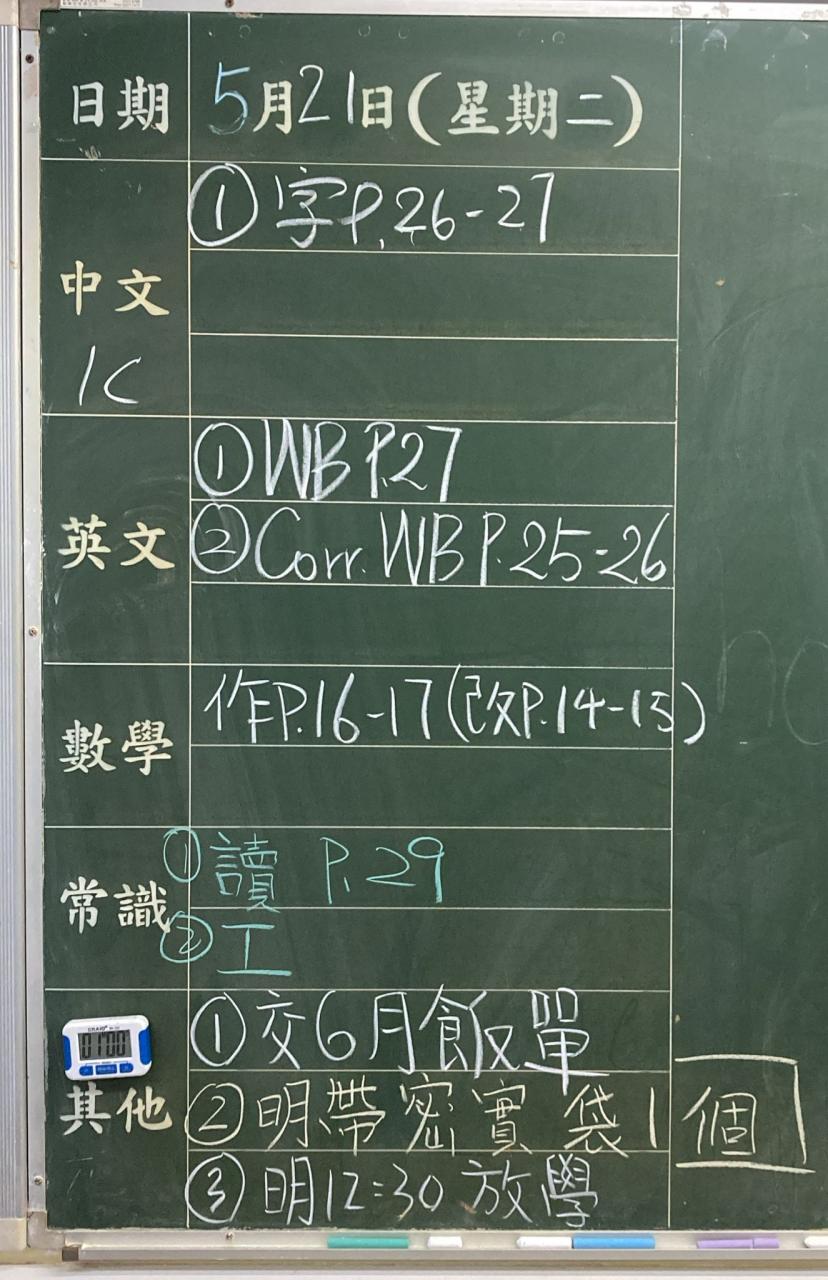 日期 5月21日(星期二)
中文 ① 字P.26-27
1C
英文 ① WB P.27
② Corr. WB P.25-26
數學 作P.16-17(改P.14-15)
常識 ① 讀 P.29
② 工
其他 ① 交6月飯單
② 明帶密實袋1個
③ 明12:30放學